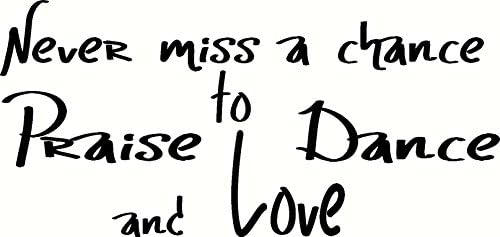 Never miss a chance
to
Praise Dance
and Love